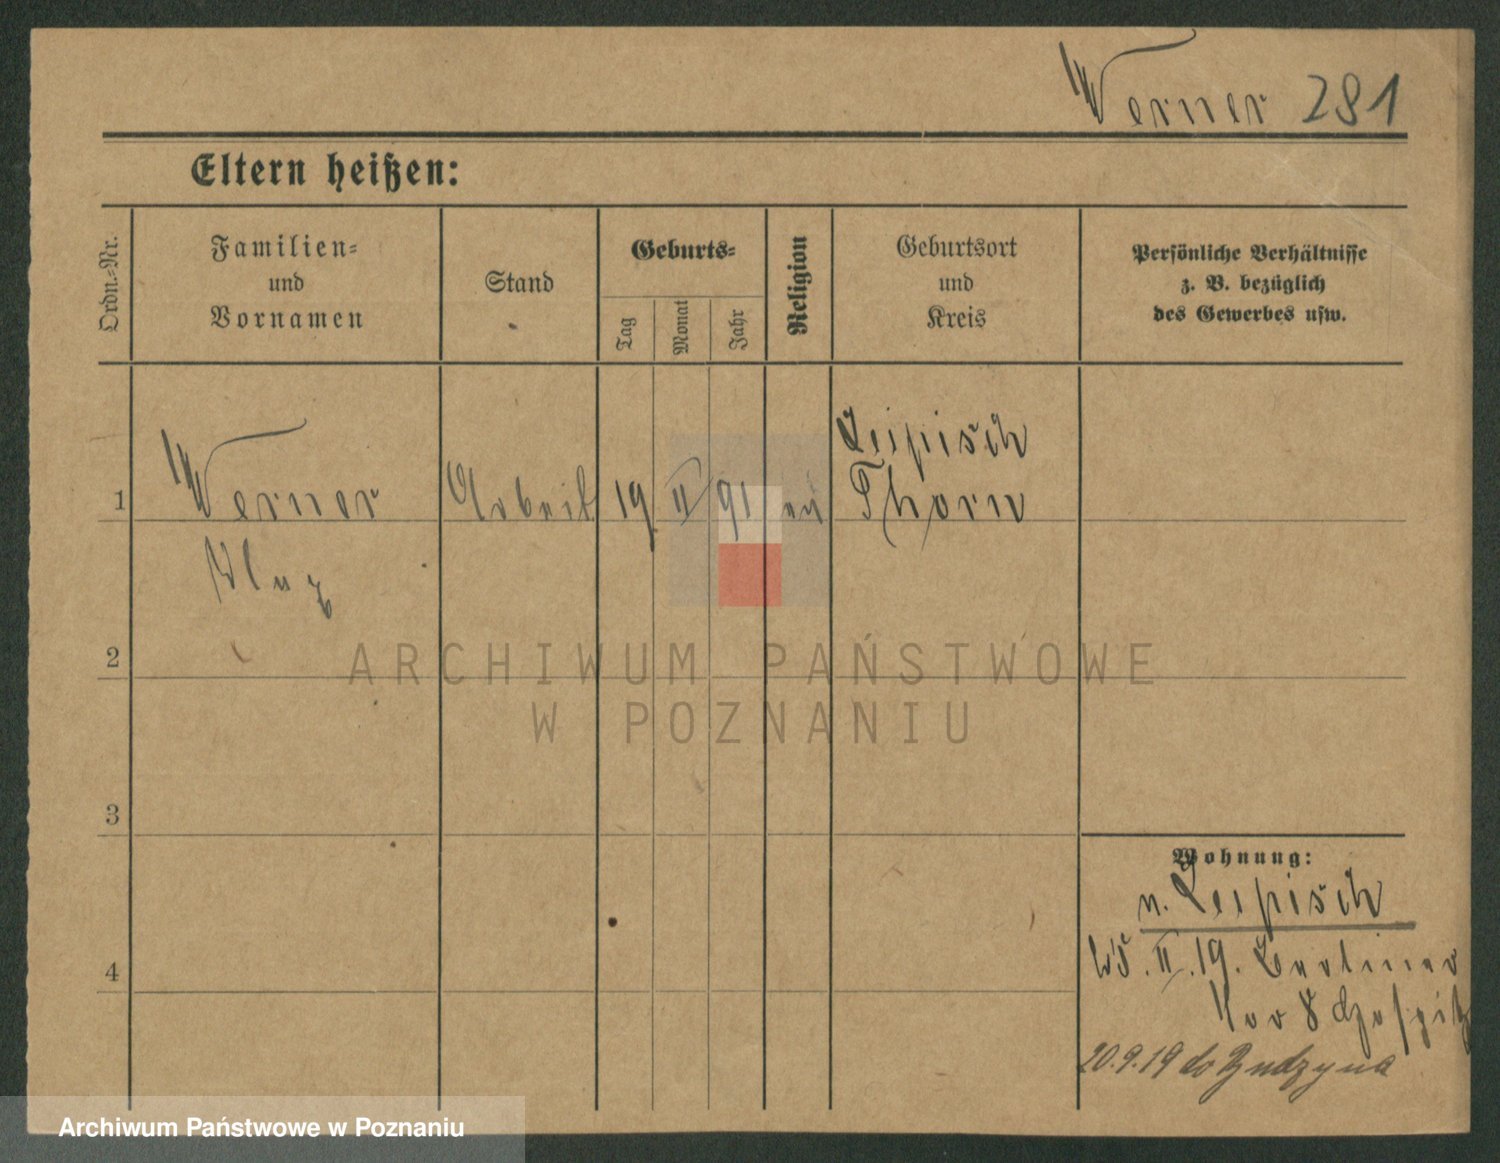 Werner 281
Eltern heißen:
Ordn.-Nr.
Familien-
und
Vornamen
Stand
Geburts-
Tag
Monat
Jahr
Religion
Geburtsort
und
Kreis
Persönliche Verhältnisse
z. B. bezüglich
des Gewerbes usw.
1
Werner
Arbeit
19
II
91
ev
Leipisch
Thorn
Max
2
3
4
Wohnung:
n. Leipisch
II. 19. Berliner
Tor 8 Hospitz
20.9.19 do
ARCHIWUM PAŃSTWOWE
W POZNANIU
Archiwum Państwowe w Poznaniu